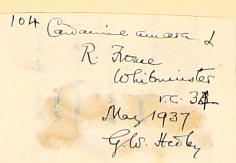 104 Cardamine amara L
R. Frome
Whitminster
v.c. 34
May 1937
G.W. Hedley